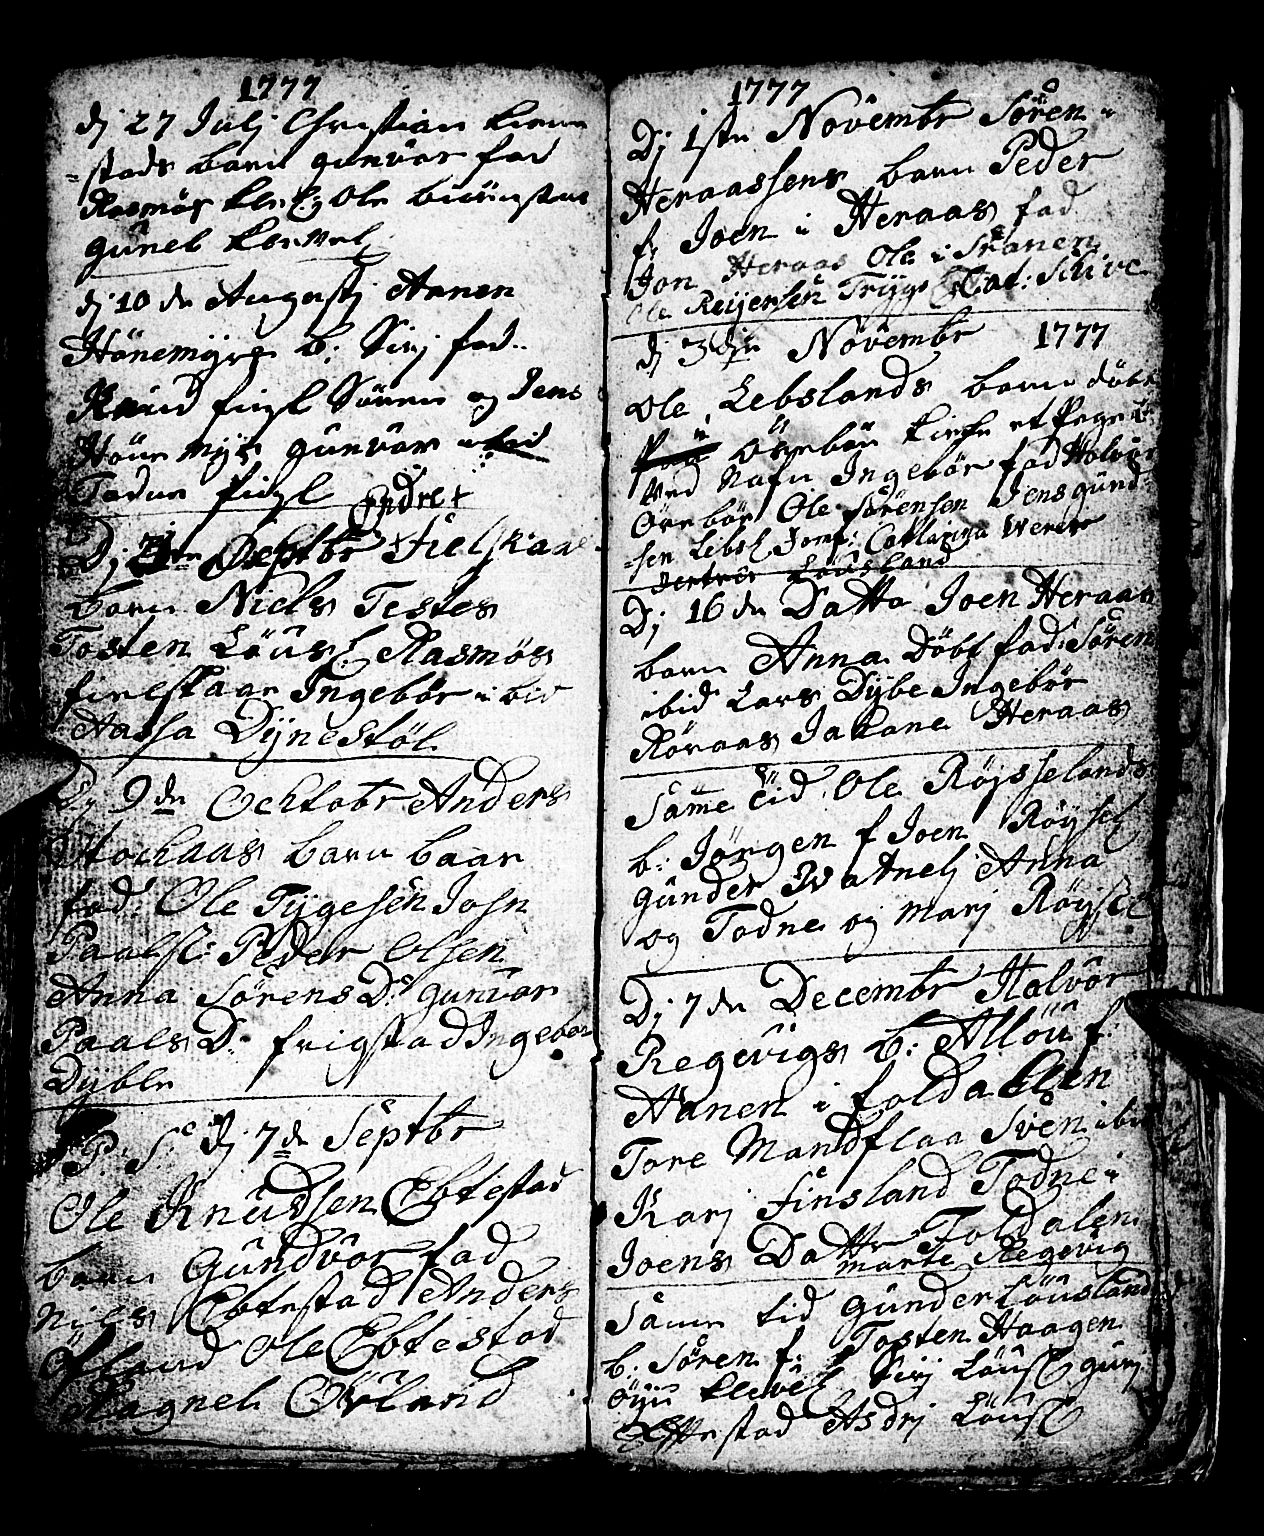 1777
dj 27 Julj Christian
=stads barn gunvor fad
Rasmös Kle: Ole
gunel
dj 10 de Augustj Aanen
Hönemyrs b: Sirj fad..
Knud fugl Sören og Jens
Höne myr gunvor ibid
Todne fugl
Endre +
Dj de Septbr Fielskaar
barn Niels Testes
Tosten Löusl: Rasmös
fielskaar Ingebör i bid
Aassa Dynestöl
Dj 9 de Ochtobr Anders
Hochaas barn baar
fad: Ole Tygesen Josn
Paalss: Peder Olsen
Anna Sörens Dr gunvor
Paals Dr frigstad Ingebor
Dyble
P: S: dj 7 de Septbr
Ole Knudsen Ebtestad
barn Gundvor fad
Nils Ebtestad Anders
Öfland Ole Ebtestad
Ragnel Öfland
1777
Dj 1ste Novembr Sören i
Heraassens barn Peder
f: Joen i Heraas fad
Jon Heraas Ole i Skanen
Ole Reijersen Trygs Cat: Schive
dj 3die Novembr 1777
Ole Lebslands barn döbt
Örebör Kirke et Pege
ved Nafn Ingebör fad Holvor
Örebör Ole Sörensen Jens gund
=sen Lebsl Jomf: Cathrina Werer
Löusland
Dj 16 de Datto Joen Heraas
barn Anna Döbt fad: Sören
ibid Lars Dybe Ingebör
Röraas Jakane Heraas
Same tid Ole Röjsselands
b: Jörgen f Joen Röysel
gunder Watnelj Anna
og Todne og Marj Röysel
Dj 7 de Decembr Holvor
Regevigs b: Allou f:
Aanen i foldalen
Tore Mandflaa Sven ibid
Karj finsland Todne i
Joens Datter Foldalen
Marte Regevig
Same tid gunder Löusland
b: Sören f: Tosten Haagen
öyu Klevel Sirj Löusl gurj
Ebtestad Asdrj Löusl